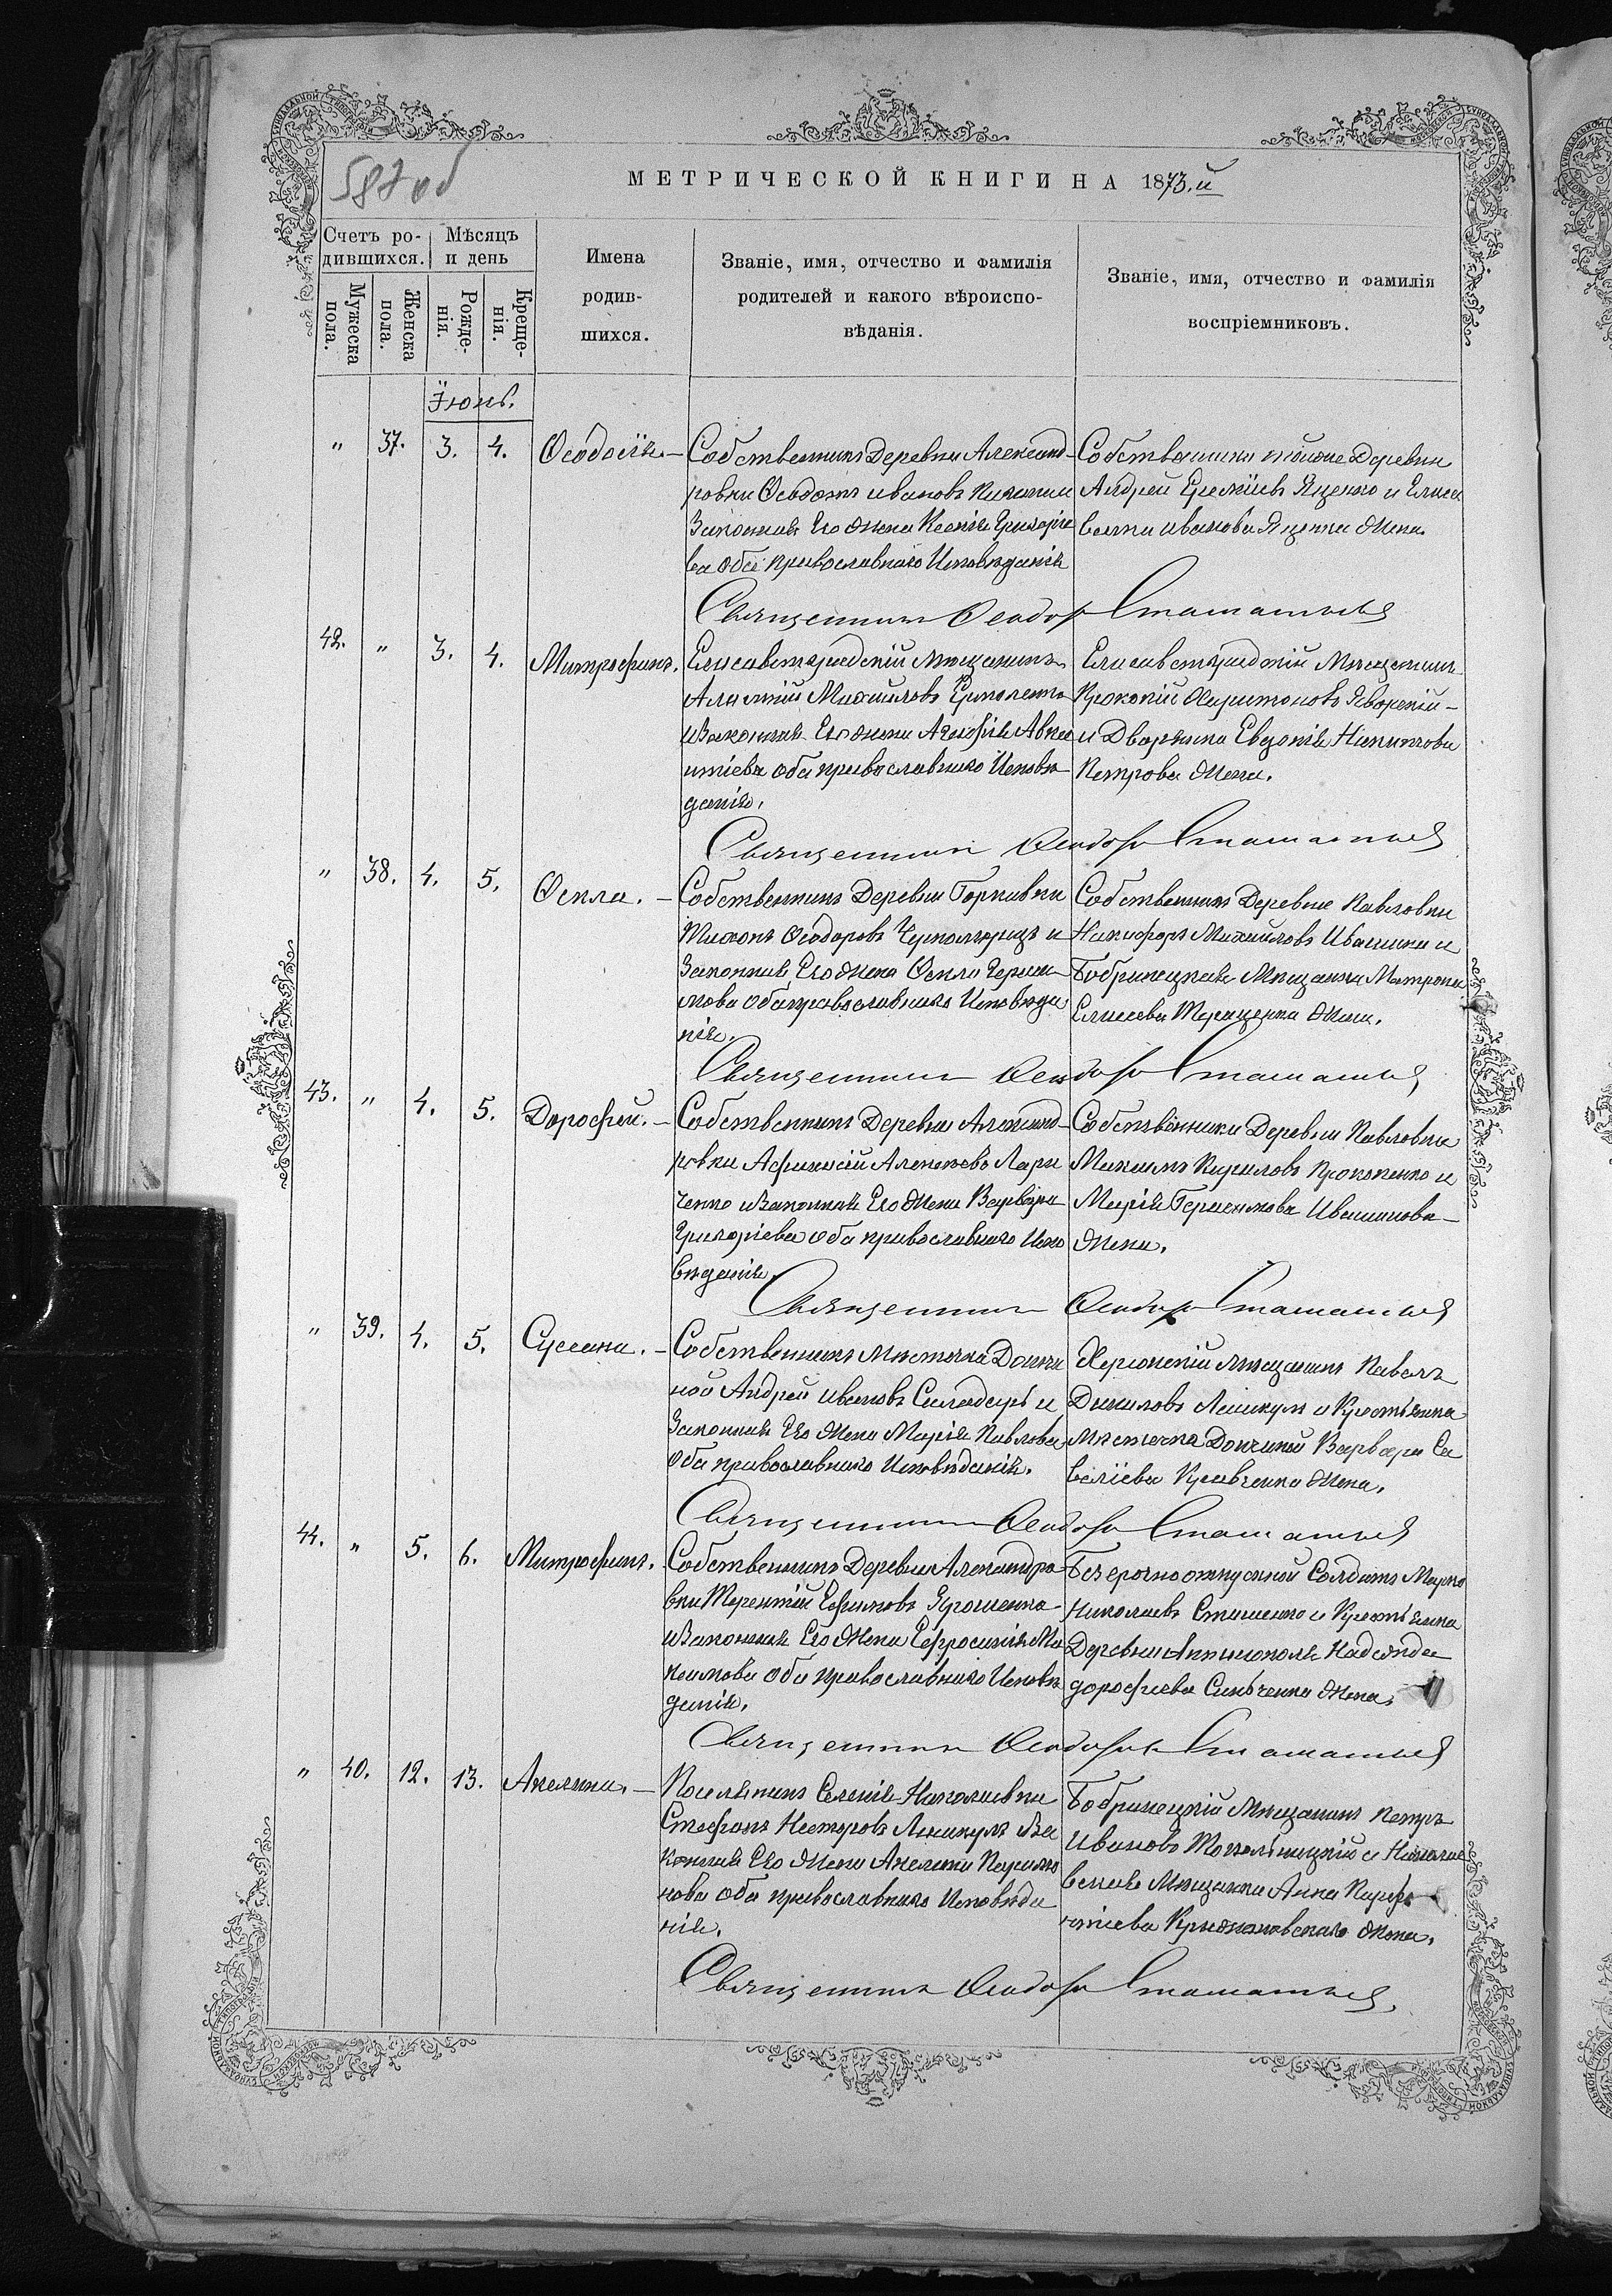 587 об
МЕТРИЧЕСКОЙ КНИГИ НА 1873.й
Счетъ ро-
дившихся.
Мѣсяцъ
и день
Мужеска
пола.
Женска
пола.
Рожде-
нія.
Креще-
нія.
Имена
родив-
шихся.
Званіе, имя, отчество и фамилія
родителей и какого вѣроиспо-
вѣданія.
Званіе, имя, отчество и фамилія
воспріемниковъ.
Іюнь.
" 37. 3. 4. Ѳеодосія. –
Собственникъ Деревни Александ-
ровки Ѳеодотъ Ивановъ и
Законная Его Жена Ксенія Григоріе
ва оба православнаго Исповѣданія
Собственники тойже Деревни
Андрей Еремѣевъ Яценко и Елиса
вета Иванова Яценка Жена.
Священникъ Ѳеодоръ
42. " 3. 4. Митрофанъ.
Елисаветградскій Мѣщанинъ
Алексѣй Михайловъ Ермоленко
и Законная Его жена Агафія
оба православнаго Исповѣ-
данія.
Елисаветградскій Мѣщанинъ
Прокопій Харитоновъ Яворскій –
и Дворянка Евдокія Никитова
Петрова Жена.
Священникъ Ѳеодоръ
" 38. 4. 5. Ѳекла. –
Собственникъ Деревни
Тихонъ Ѳеодоровъ Черноморецъ и
Законная Его Жена Ѳекла Гераси-
мова оба православнаго Исповѣда
нія.
Собственникъ Деревни Павловки
Никифоръ Михайловъ Ивашина и
Бобринецкая Мѣщанка Матрона
Елисеева Терещенка Жена.
Священникъ Ѳеодоръ
43. " 4. 5. Дорофей. –
Собственникъ Деревни Александ-
ровки Афанасій Алексѣевъ Лари
ченко и Законная Его Жена Варвара
Григоріева оба православнаго Испо
вѣданія.
Собственники Деревни Павловки
Максимъ Кириловъ Прокопенко и
Марія Герасимова Ивашинова –
Жена.
Священникъ Ѳеодоръ
" 39. 4. 5. Сусанна. –
Собственникъ Мѣстечка Долин
ной Андрей Ивановъ и
Законная Его Жена Марія Павлова
Оба православнаго Исповѣданія.
Херсонскій Мѣщанинъ Павелъ
Даниловъ и Крестьянка
Мѣстечка Долинной Варвара Са
веліева Кравченка Жена.
Священникъ Ѳеодоръ
44. " 5. 6. Митрофанъ.
Собственникъ Деревни Александро
вки Терентій Ефимовъ Ярошенка
и Законная Его Жена Ефросинія Ма
ксимова оба православнаго Исповѣ
данія.
Безсрочноотпускной Солдатъ Марко
Николаевъ Сташенко и Крестьянка
Деревни Надежда
дорофеева Синьченка Жена.
Священникъ Ѳеодоръ
" 40. 12. 13. Акелина. –
Поселянинъ Селенія Николаевки
Стефанъ Несторовъ и За
конная Его Жена Акелина
оба православнаго Исповѣда
нія.
Бобринецкій Мѣщанинъ Петръ
Ивановъ и Николае
вская Мѣщанка Анна Парфе
нтіева Крыжановскаго Жена.
Священникъ Ѳеодоръ